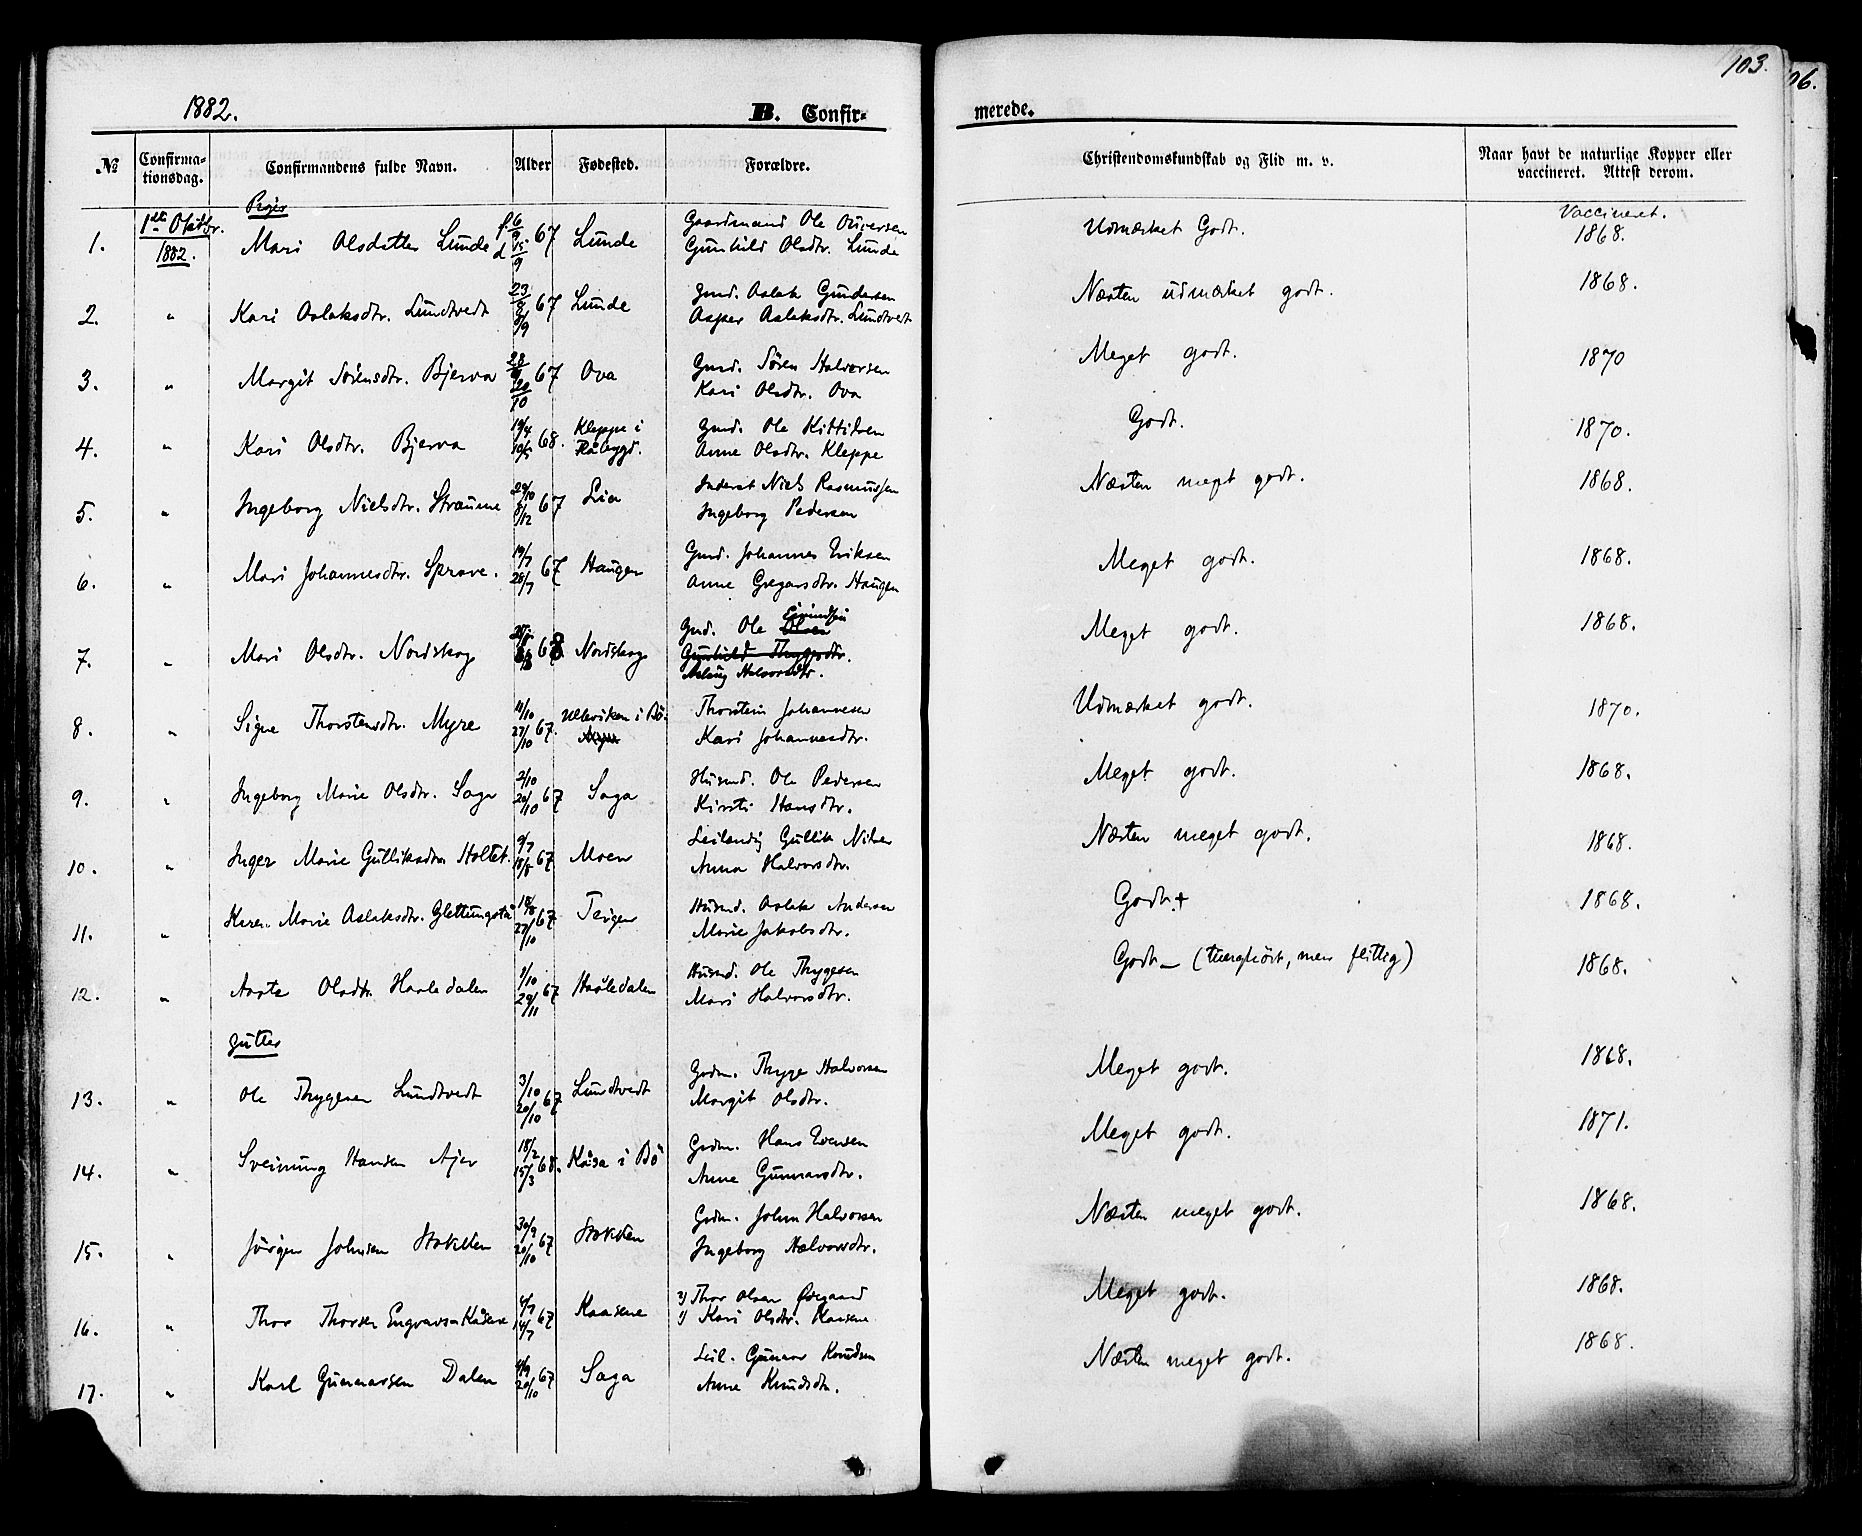 1882.
B. Confir-
merede.
103.
06.
№
Confirma-
tionsdag.
Confirmandens fulde Navn.
Alder
Fødested.
Forældre.
Christendomskundskab og Flid m. v.
Naar havt de naturlige Kopper eller
vaccineret. Attest derom.
Piger
1. 1ste Oktbr. 1882. Mari Olsdatter Lunde f. 6/9 67 d. 15/9 Lunde
Gaardmand Ole
Gunhild Olsdtr. Lunde
Udmærket Godt.
Vaccineret.
1868.
2. " Kari Aslaksdtr. Lundtvedt 67 Lunde
Gmd. Aslak Gundersen
Aslaksdtr. Lundtvedt
Næsten udmærket godt.
1868.
3. " Margit Sørensdtr. Bjerva 67 Ova
Gmd. Søren Halvorsen
Kari Olsdtr. Ova
Meget godt.
1870
4. " Kari Olsdtr. Bjerva 19/4 68. 10/5 Kleppe i
Gmd. Ole Kittilsen
Anne Olsdtr. Kleppe
Godt.
1870.
5. " Ingeborg Nielsdtr. Straume 29/10 67 8/12 Lia
Inderst Niels Rasmussen
Ingeborg Pedersen
Næsten meget godt.
1868.
6. " Mari Johannesdtr. Sprove. 19/7 67 28/7 Haugen
Gmd. Johannes Eriksen
Anne Gregarsdtr. Haugen
Meget godt.
1868.
7. " Mari Olsdtr. Nordskog 68 Nordskog
Gmd. Ole Olsen Eivindsen
Gunhild Thygesdtr.
Aslaug Halvorsdtr.
Meget godt.
1868.
8. " Signe Thorstensdtr. Myre 11/10 67. 27/10 Ulleviken i Bø.
Thorstein Johannesen
Kari Johannesdtr.
Udmærket godt.
1870.
9. " Ingeborg Marie Olsdtr. Saga 2/10 67 20/10 Saga
Husmd. Ole Pedersen
Kirsti Hansdtr.
Meget godt.
1868.
10. " Inger Marie Gulliksdtr. Holtet. 9/7 67 18/8 Moen
Leilændig Gullik Nilsen
Anna Halvorsdtr.
Næsten meget godt.
1868.
11. " Karen Marie Aslaksdtr. 18/8 67 27/10 Teigen
Husmd. Aslak Andersen
Marie Jakobsdtr.
Godt +
1868.
12. " Aaste Olsdtr. Haatedalen 1/10 67 29/11 Haatedalen
Husmd. Ole Thygesen
Mari Halvorsdtr.
Godt – (tunghørt, men flittig)
1868.
Gutter
13. " Ole Thygesen Lundtvedt 3/10 67 20/10 Lundtvedt
Grdm. Thyge Halvorsen
Margit Olsdtr.
Meget godt.
1868.
14. " Sveinung Hansen Ajer 18/2 68. 15/3 Kåsa i Bö
Grdm. Hans Evensen
Anne Gunnarsdtr.
Meget godt.
1871.
15. " Jörgen Johnsen Stoksten 30/9 67 20/10 Stoksten
Grdm. John Halvorsen
Ingeborg Halvorsdtr.
Næsten meget godt.
1868.
16. " Thor Thorsen Kåsene 4/7 67 14/7 Kaasene
2) Thor Olsen Øvegaard
1) Kari Olsdtr. Kaasene
Meget godt.
1868.
17. " Karl Gunnarsen Dalen 4/9 67 20/10 Saga
Leil. Gunnar Knudsen
Anne Knudsdtr.
Næsten meget godt.
1868.